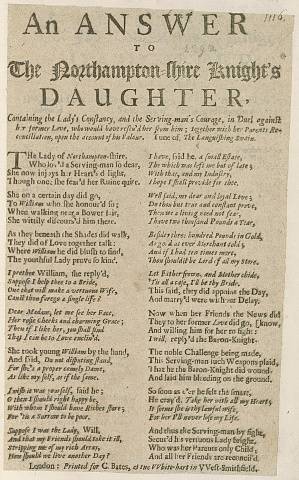 An ANSWER
TO
The Northampton-shire Knight's
DAUGHTER,
Containing the Lady's Constancy, and the Serving-man's Courage, in Duel against
her former Love, who would have rescu'd her from him; together with her Parents Re-
conciliation, upon the account of his Valour. Tune of, The Languishing Swain.
THe Lady of Northampton-shire,
Who lov'd a Serving-man so dear,
She now injoys her Heart's delight,
Though one she fear'd her Ruine quite.
She on a certain day did go,
To William whom she honour'd so;
When walking near a Bower fair,
She wittily discours'd him there.
As they beneath the Shades did walk,
They did of Love together talk:
Where William he did blush to find,
The youthful Lady prove so kind.
I prethee William, she reply'd,
Suppose I help thee to a Bride,
One that will make a vertuous Wife,
Can'st thou forego a single life?
Dear Madam, let me see her Face,
Her rosie cheeks and charming Grace;
Then if I like her, you shall find
That I can be to Love enclin'd.
She took young William by the hand,
And said, Do not disputing stand,
For she's a proper comely Dame,
Just like my self, as if the same.
I wish it was yourself, said he;
O then I should right happy be,
With whom I should have Riches store;
For I'm a Servant to be poor.
Suppose I was the Lady, Will,
And that my Friends should take it ill,
Stripping me of my rich Array,
How should we love another Day?
I have, said he, a small Estate,
The which was left me but of late;
With that, and my Industry,
I hope I shall provide for thee.
Well said, my dear and loyal Love;
Do thou but true and constant prove,
Thou art a living need not fear,
I have two thousand Pounds a Year,
Besides three hundred Pounds in Gold,
As good as ever Merchant told;
And if I had ten times more,
Thou shouldst be Lord of all my Store.
Let Father frown, and Mother chide,
To all a tope, I'll be thy Bride.
This said, they did appoint the Day,
And marry'd were without Delay.
Now when her Friends the News did
They to her former Love did go, [know,
And willing him for her to fight:
I will, reply'd the Baron-Knight.
The noble Challenge being made,
This Serving-man such Weapons plaid,
That he the Baron-Knight did wound
And laid him bleeding on the ground.
So soon as e'er he felt the smart,
He cry'd, Take her with all my Heart;
It seems she is thy lawful wife,
For her I'll never lose my Life.
And thus the Serving-man by fight,
Secur'd his vertuous Lady bright,
Who was her Parents only Child;
And all her Friends are reconcil'd.
London: Printed for C. Bates, at the White-hart in West-Smithfield.